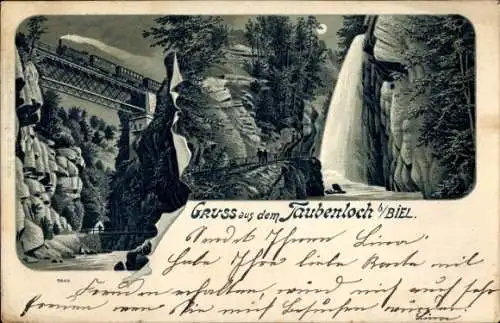 Gruss aus dem Taubenloch b/BIEL.
Sendet Ihnen Lina.
Habe Ihre liebe Karte mit
Freuden erhalten, würd mich auch sehr
freuen wen Sie mich besuchen würden.
Lina